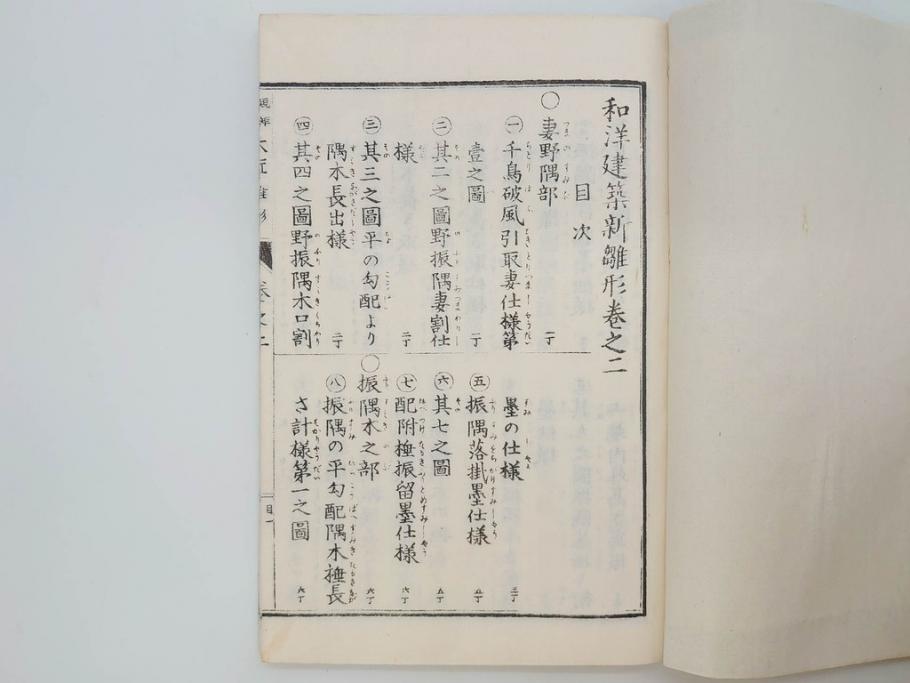 和洋建築新雛形巻之二
目次
○妻野隅部
㊀千鳥破風引取妻仕様第 一丁
壹之圖 一丁
㊁其二之圖野振隅妻割仕
様 二丁
㊂其三之圖平の勾配より
隅木長出様 二丁
㊃其四之圖野振隅木口割
墨の仕様 三丁
㊄振隅落掛墨仕様 五丁
㊅其七之圖 五丁
㊆配附棰振留墨仕様 六丁
○振隅木之部 六丁
㊇振隅の平勾配隅木棰長
さ計様第一之圖 六丁
大匠雛形
巻之二